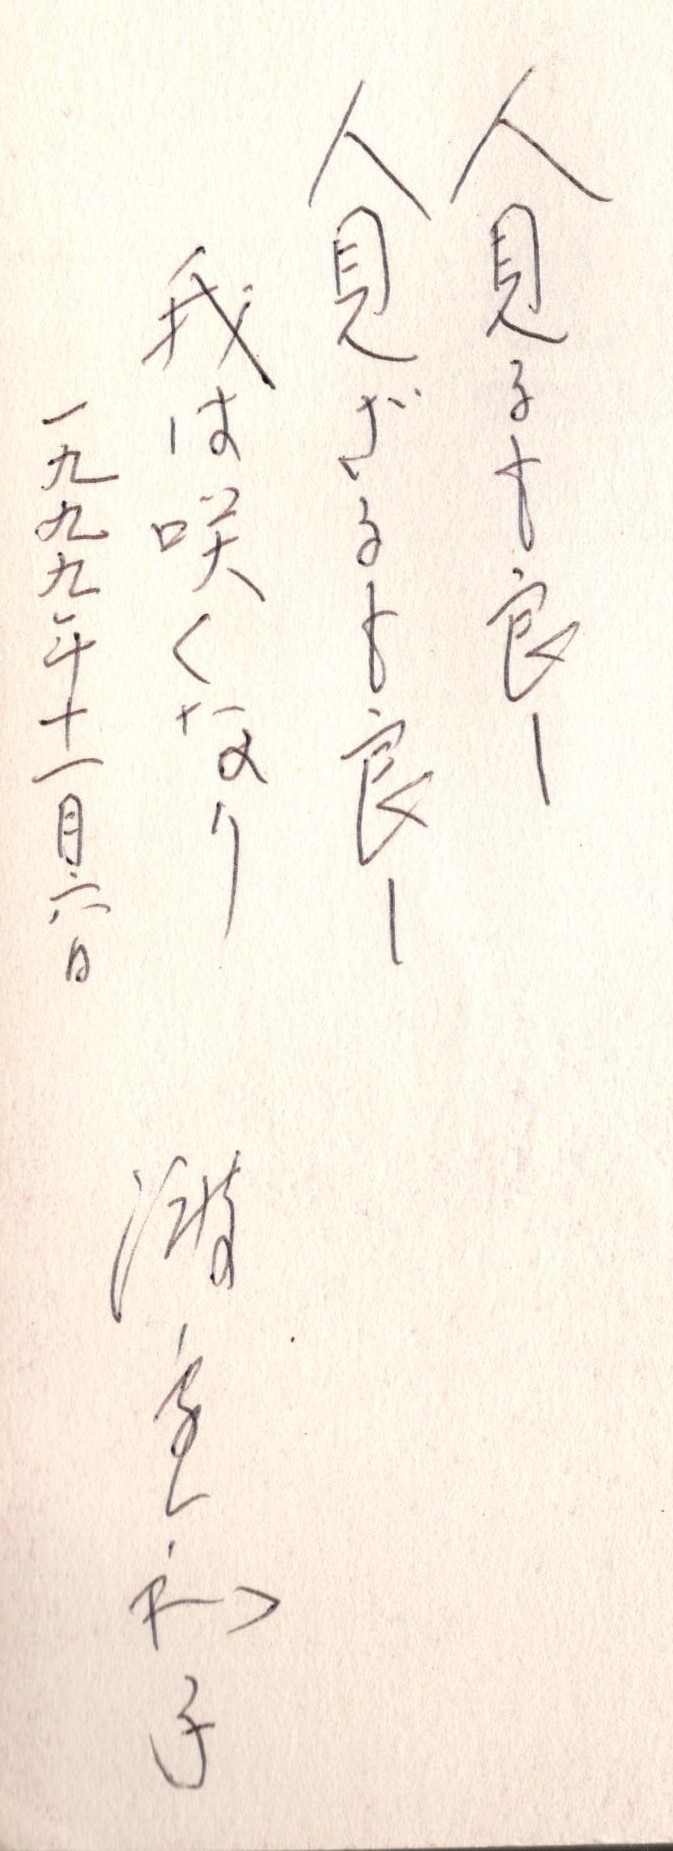 人見るも良し
人見ざるも良し
我は咲くなり
一九九九年十一月六日
渡金和子